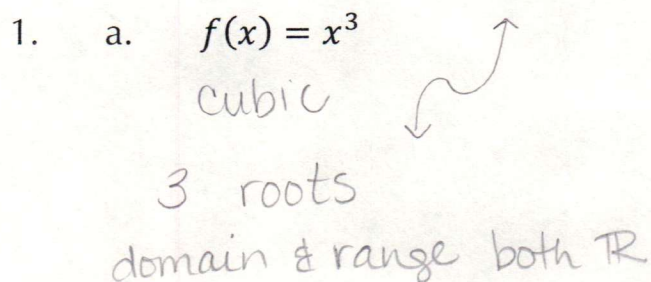 1. a. f(x) = x³
cubic
3 roots
domain & range both ℝ